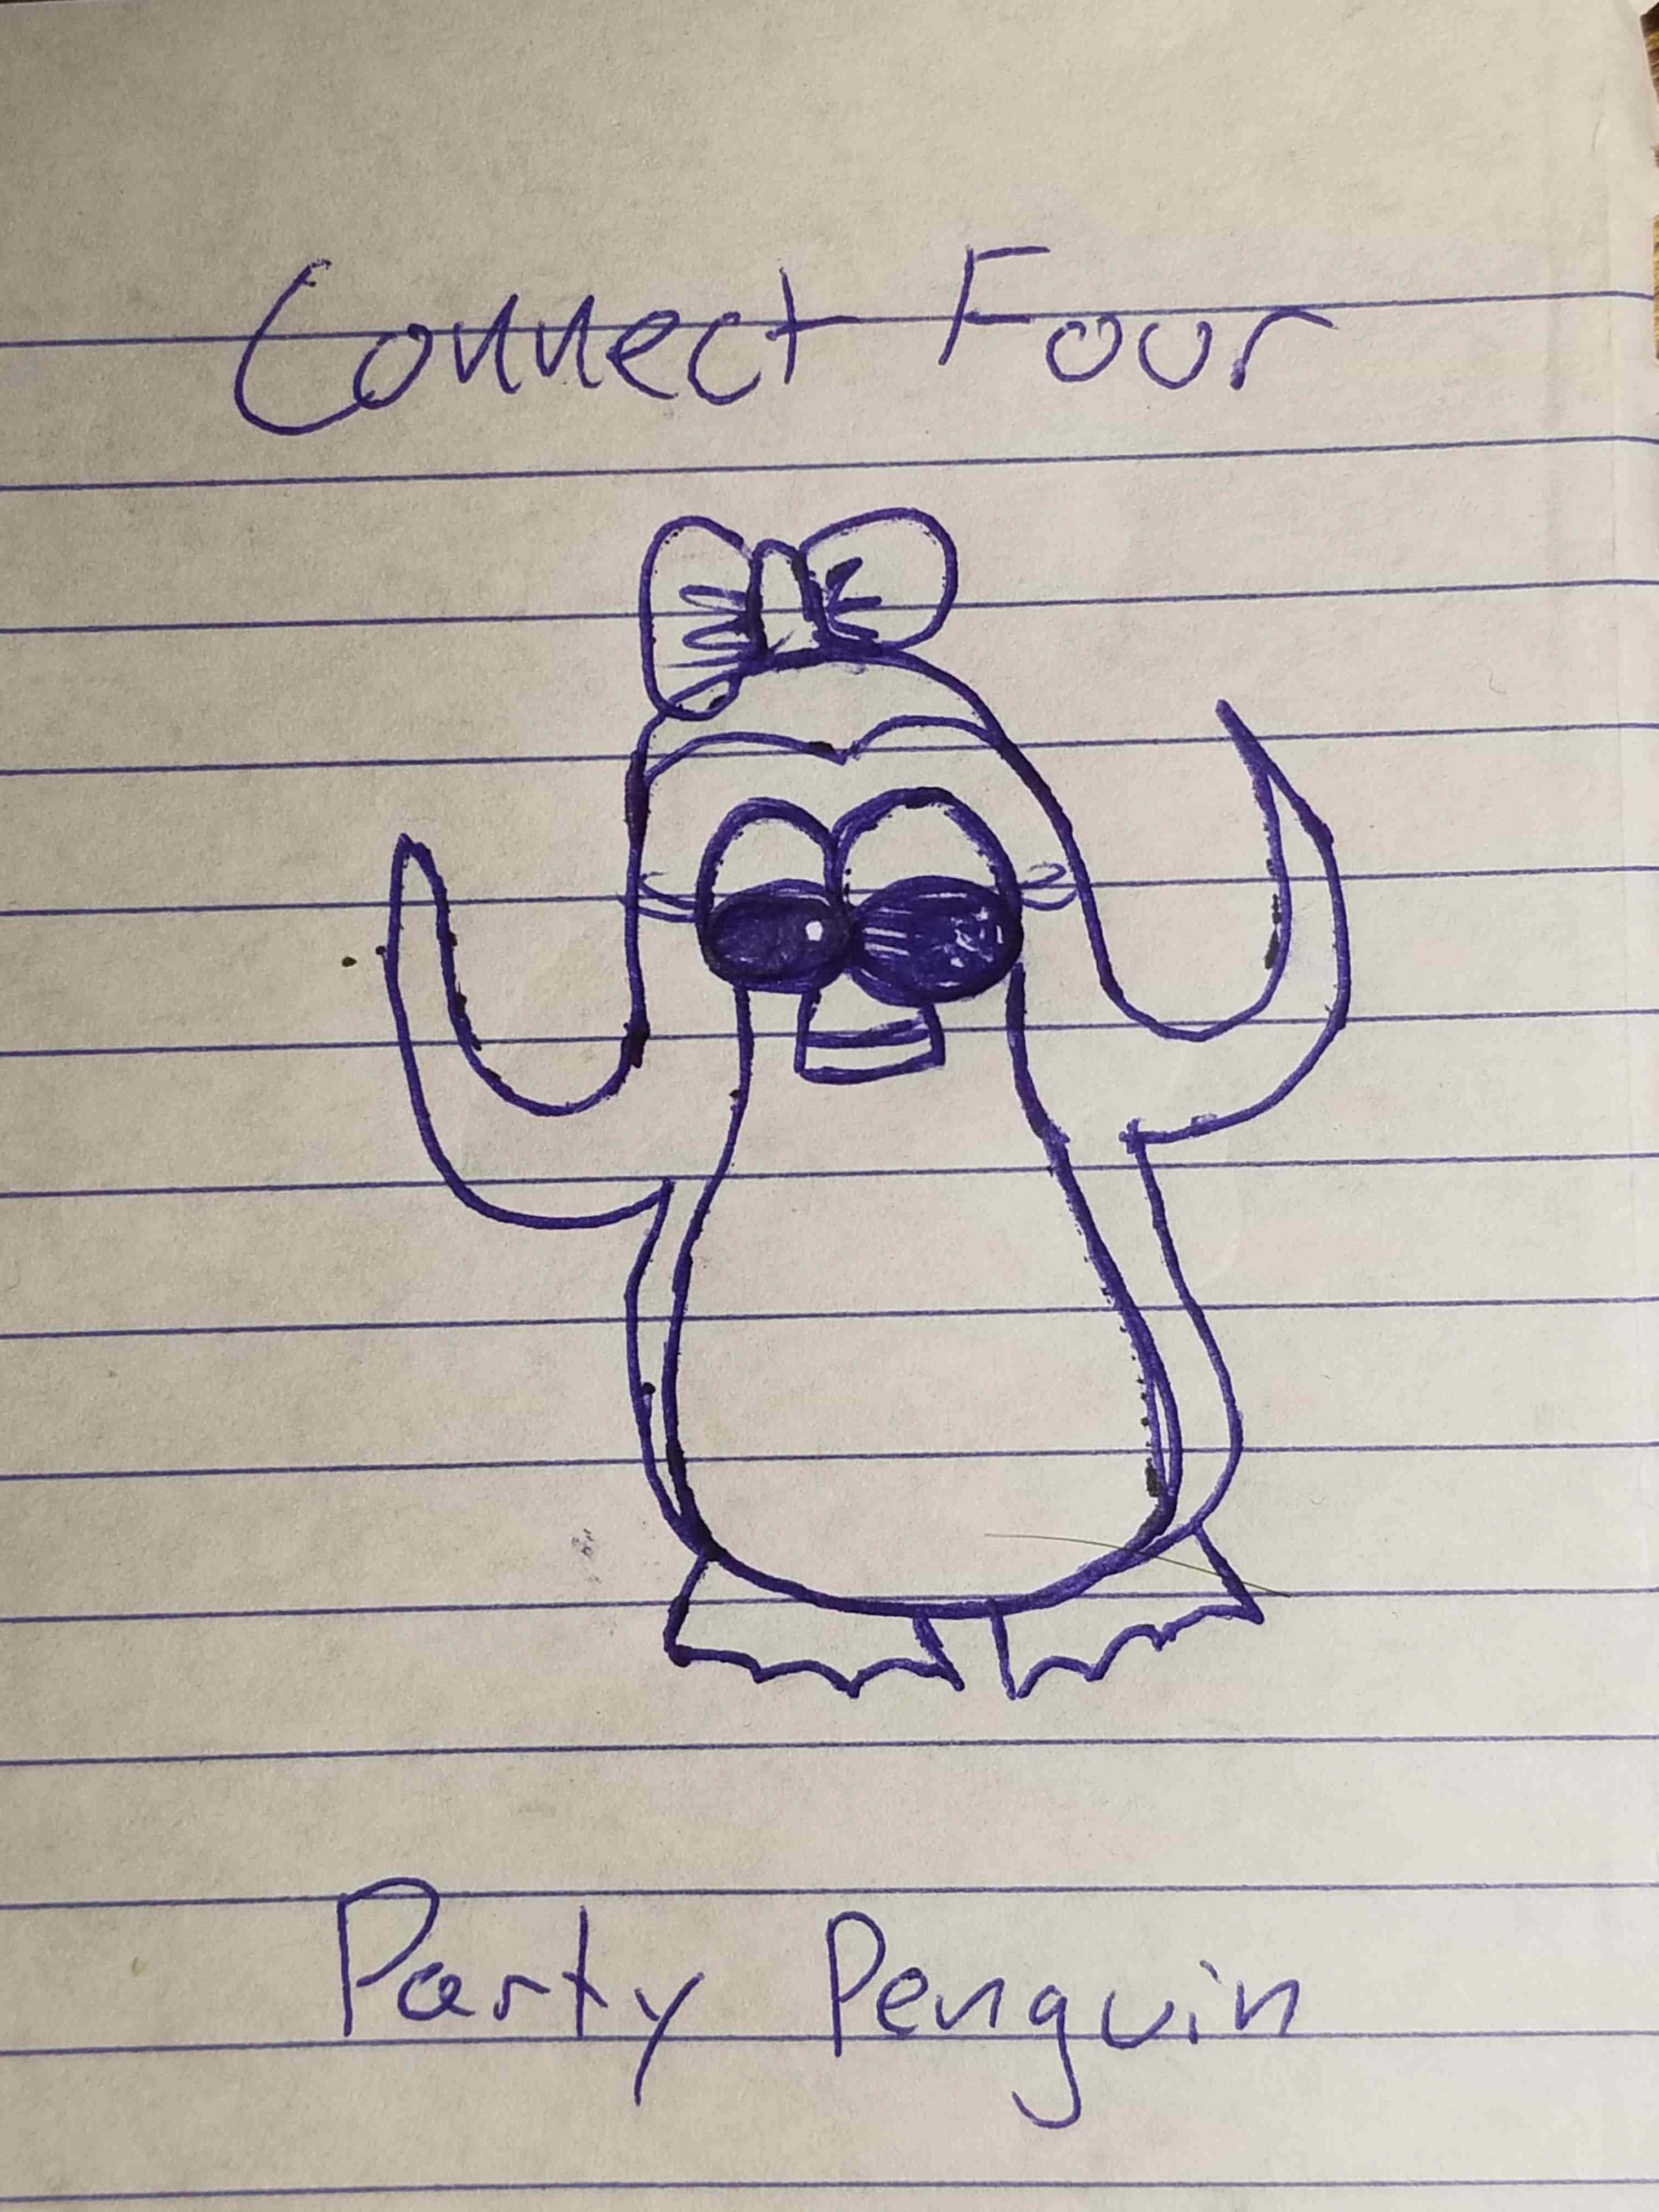 Connect Four
Party Penguin